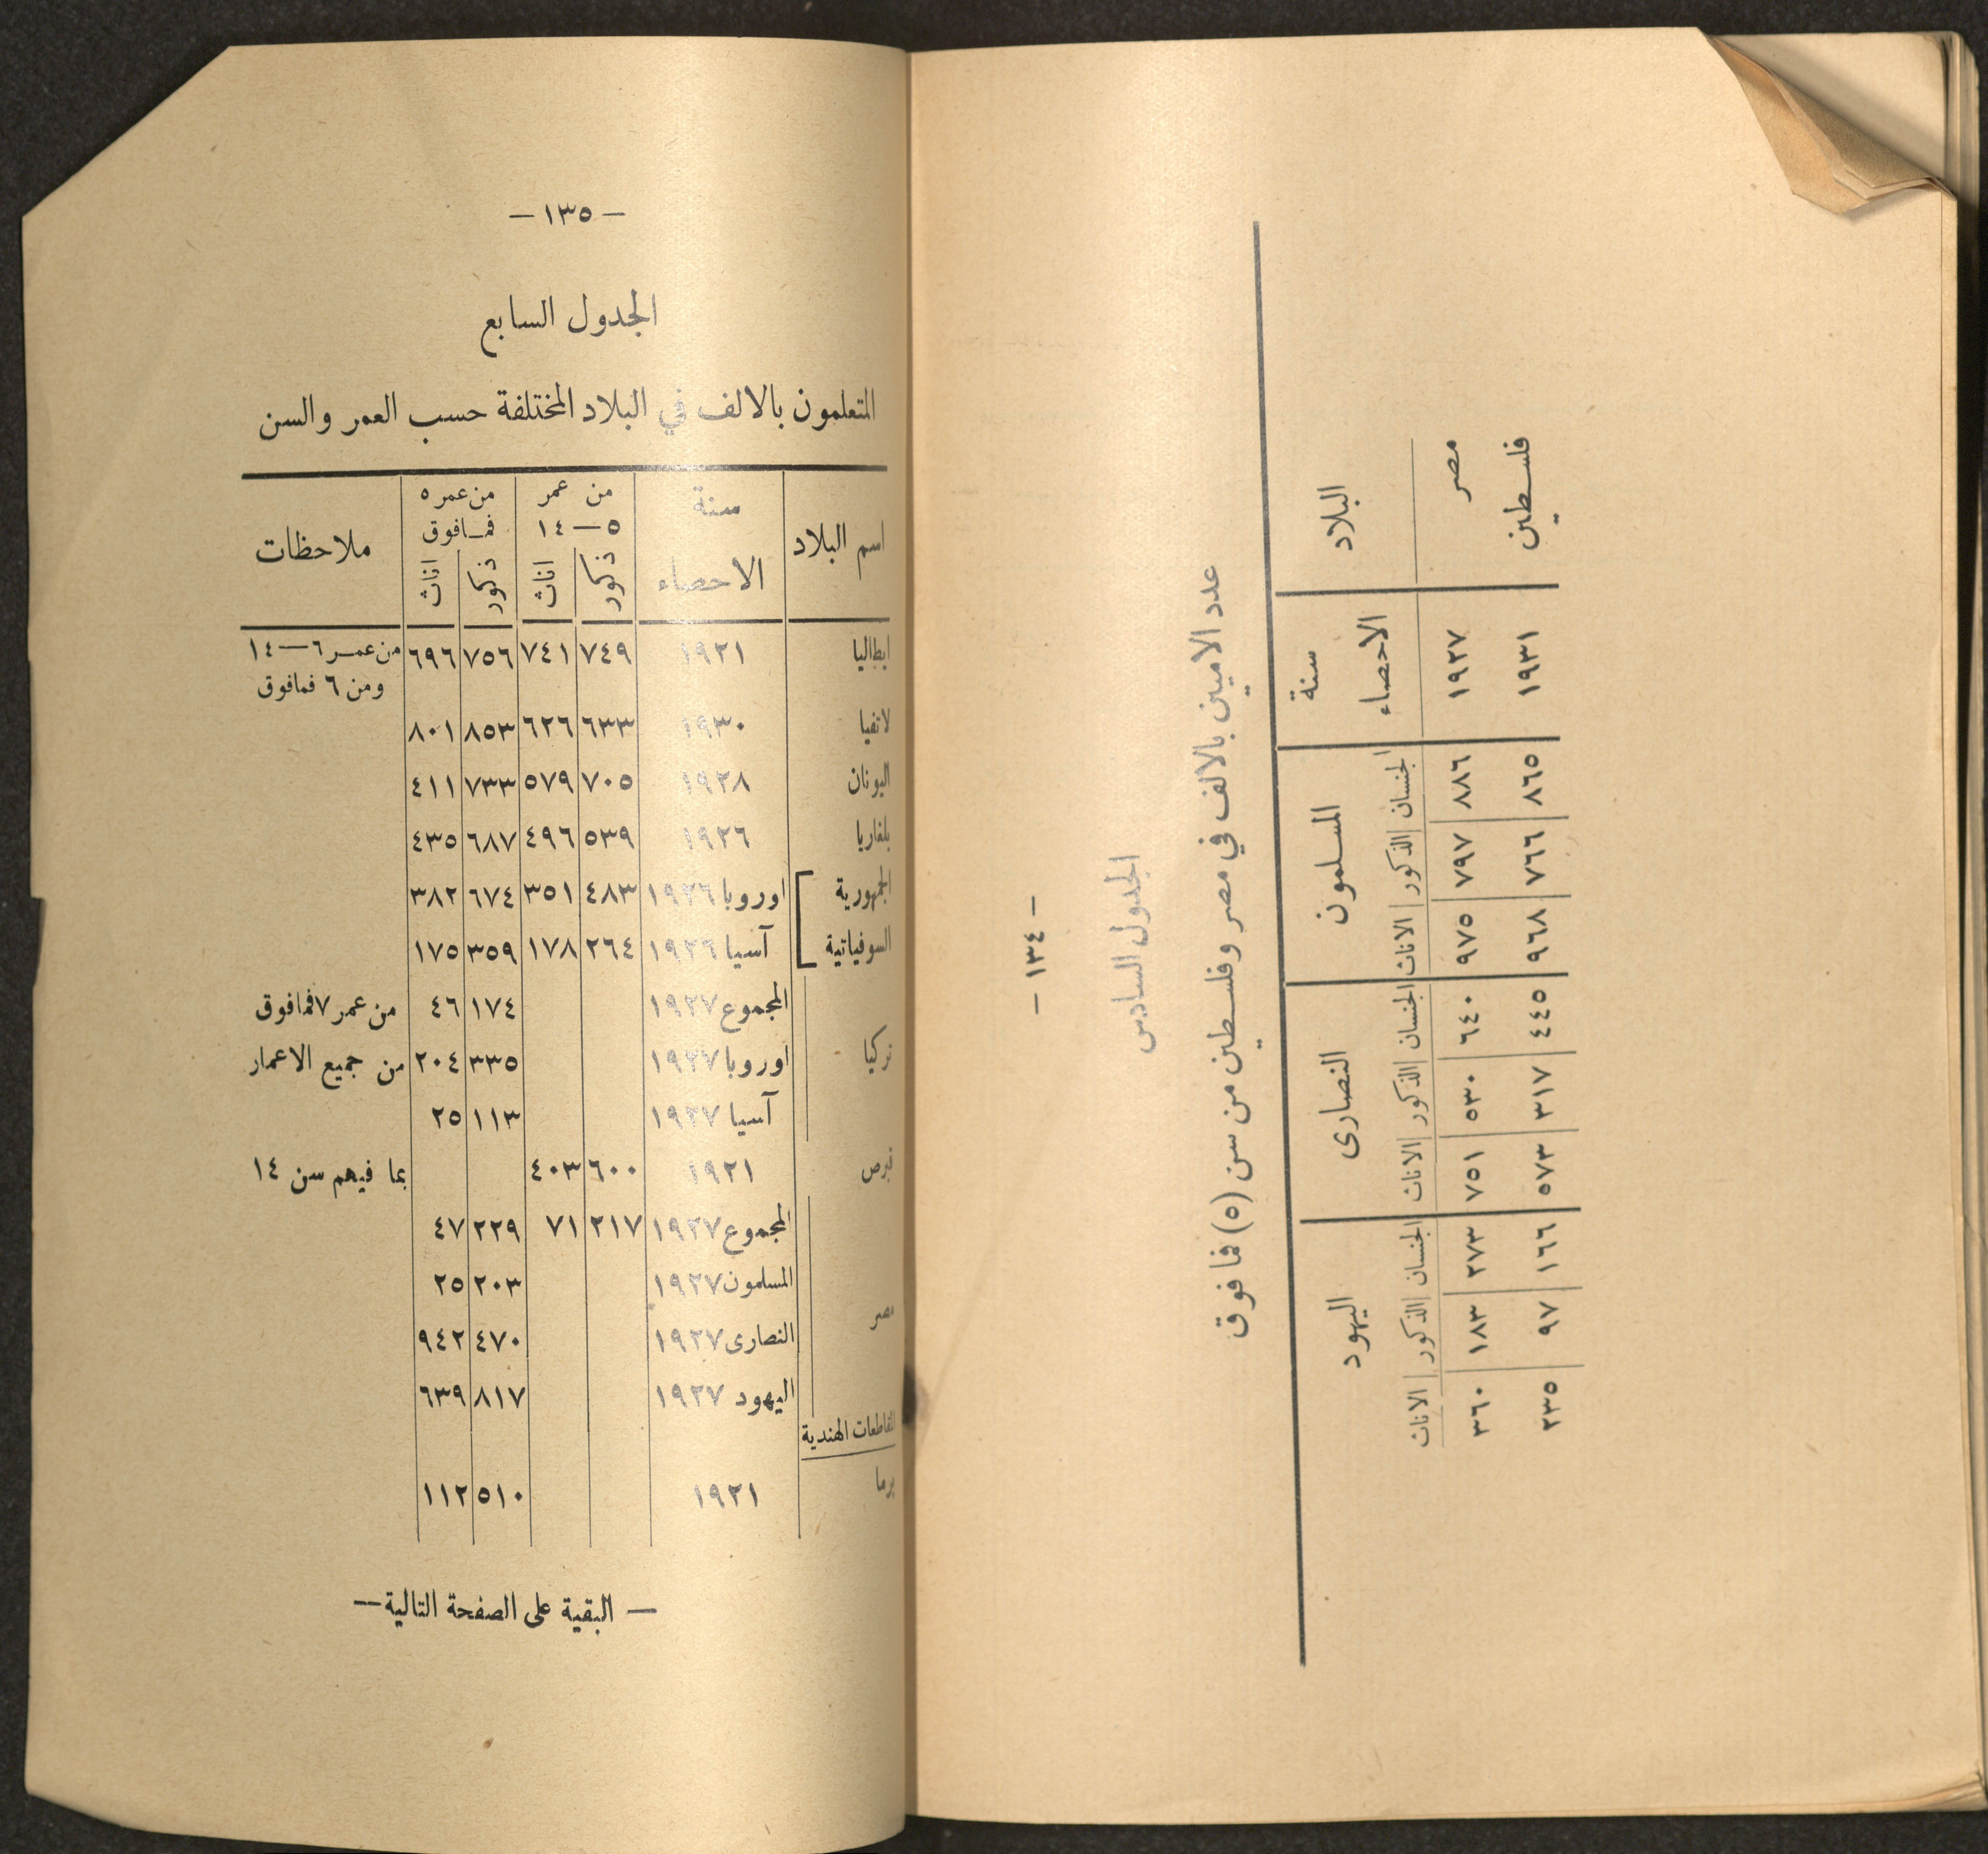 — ١٣٤ —
الجدول السادس
عدد الاميين بالالف في مصر وفلسطين من سن (٥) فما فوق
البلاد | سنة الاحصاء | المسلمون | النصارى | اليهود
الجنسان | الذكور | الاناث | الجنسان | الذكور | الاناث | الجنسان | الذكور | الاناث
مصر | ١٩٢٧ | ٨٨٦ | ٧٩٧ | ٩٧٥ | ٦٤٠ | ٥٣٠ | ٧٥١ | ٢٧٣ | ١٨٣ | ٣٦٠
فلسطين | ١٩٣١ | ٨٦٥ | ٧٦٦ | ٩٦٨ | ٤٤٥ | ٣١٧ | ٥٧٣ | ١٦٦ | ٩٧ | ٢٣٥
— ١٣٥ —
الجدول السابع
المتعلمون بالالف في البلاد المختلفة حسب العمر والسن
اسم البلاد | سنة الاحصاء | من عمر ٥ — ١٤ | من عمر ٥ فمافوق | ملاحظات
ذكور | اناث | ذكور | اناث
ايطاليا | ١٩٢١ | ٧٤٩ | ٧٤١ | ٧٥٦ | ٦٩٦ | من عمر ٦ — ١٤
ومن ٦ فمافوق
لاتفيا | ١٩٣٠ | ٦٣٣ | ٦٢٦ | ٨٥٣ | ٨٠١
اليونان | ١٩٢٨ | ٧٠٥ | ٥٧٩ | ٧٣٣ | ٤١١
بلغاريا | ١٩٢٦ | ٥٣٩ | ٤٩٦ | ٦٨٧ | ٤٣٥
الجمهورية | اوروبا ١٩٢٦ | ٤٨٣ | ٣٥١ | ٦٧٤ | ٣٨٢
السوفياتية | آسيا ١٩٢٦ | ٢٦٤ | ١٧٨ | ٣٥٩ | ١٧٥
المجموع ١٩٢٧ | ١٧٤ | ٤٦ | من عمر ٧ فمافوق
تركيا | اوروبا ١٩٢٧ | ٣٣٥ | ٢٠٤ | من جميع الاعمار
آسيا ١٩٢٧ | ١١٣ | ٢٥
قبرص | ١٩٢١ | ٦٠٠ | ٤٠٣ | بما فيهم سن ١٤
المجموع ١٩٢٧ | ٢١٧ | ٧١ | ٢٢٩ | ٤٧
المسلمون ١٩٢٧ | ٢٠٣ | ٢٥
مصر | النصارى ١٩٢٧ | ٤٧٠ | ٩٤٢
اليهود ١٩٢٧ | ٨١٧ | ٦٣٩
المقاطعات الهندية
برما | ١٩٢١ | ٥١٠ | ١١٢
— البقية على الصفحة التالية —